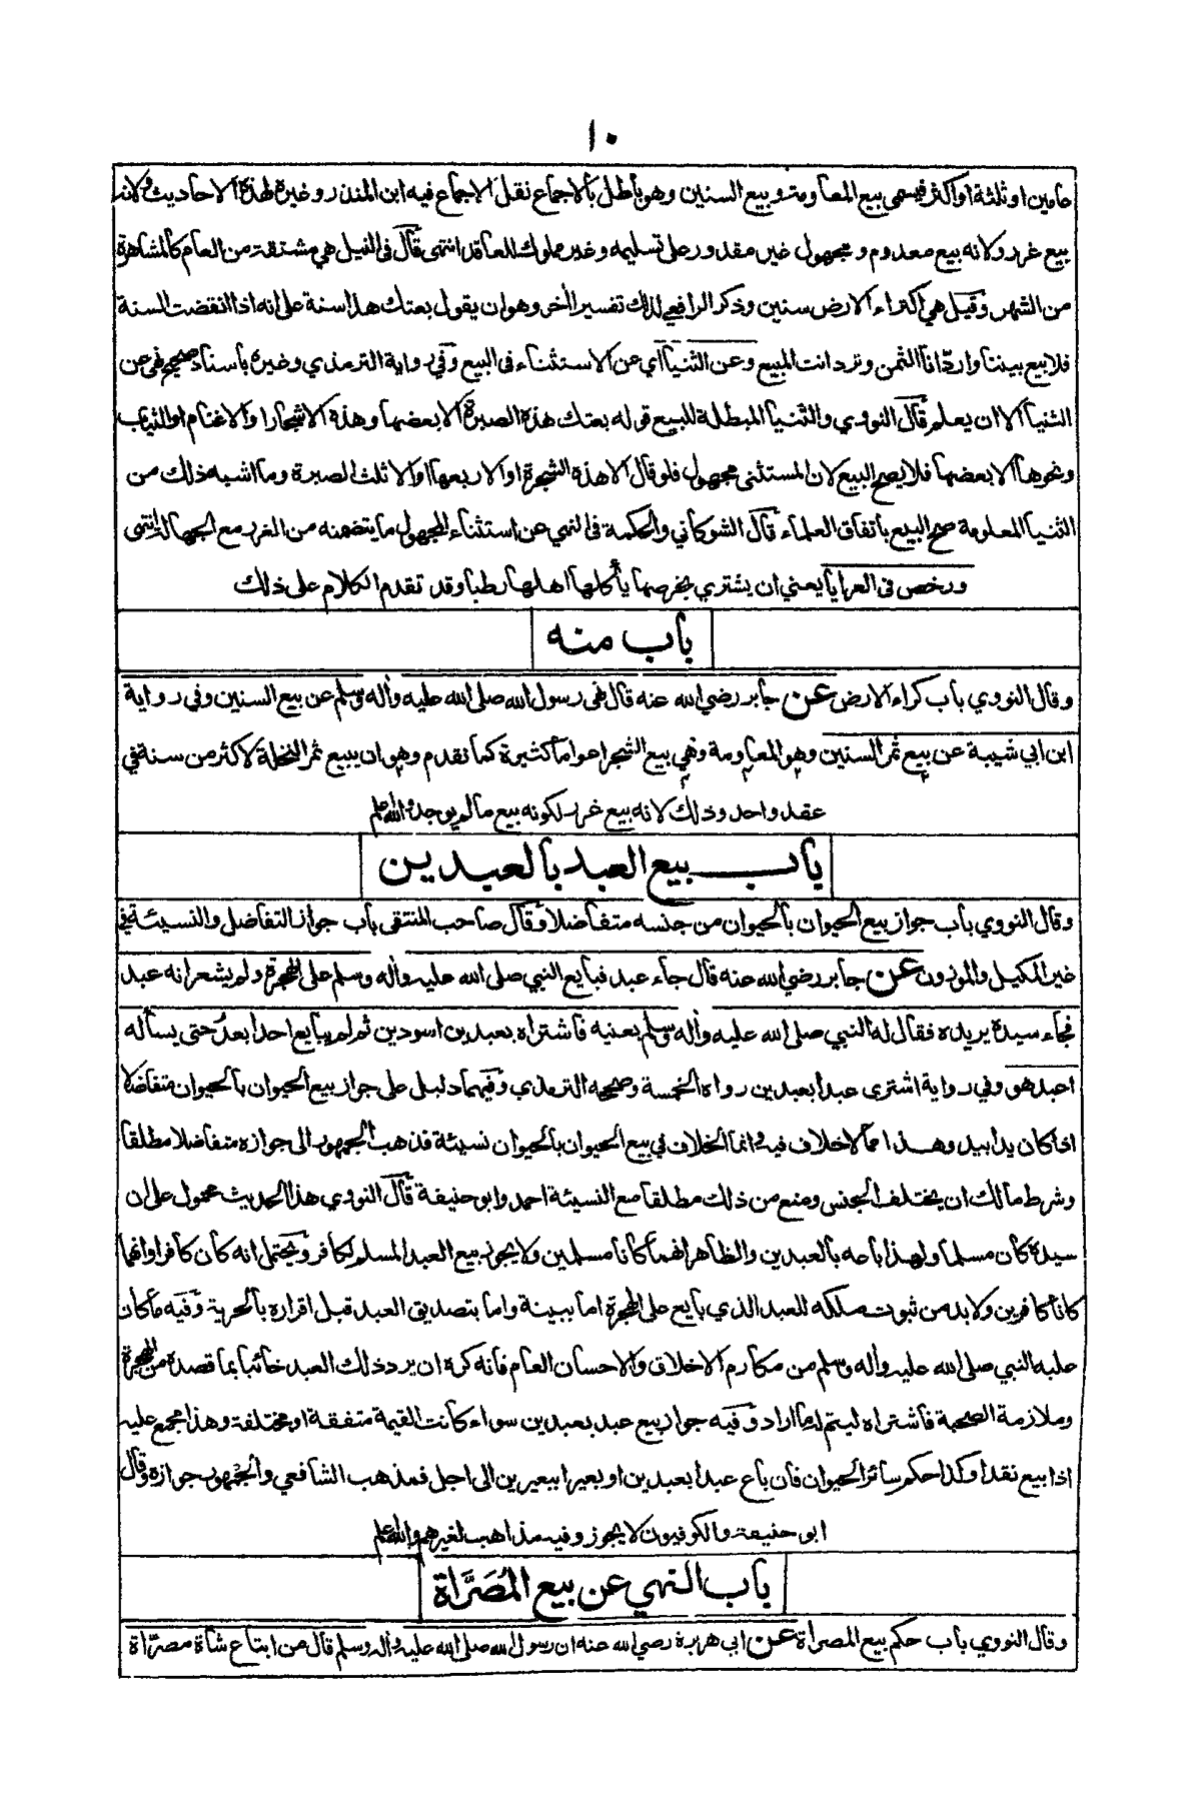 ١٠
عامين او ثلثة او اكثر فيسمى بيع المعاومة وبيع السنين وهو باطل بالاجماع نقل الاجماع فيه ابن المنذر وغيره لهذه الاحاديث ولانه
بيع غرر ولانه بيع معدوم ومجهول غير مقدور على تسليمه وغير مملوك للعاقد انتهى قال في النيل هي مشتقة من العام كالمشاهرة
من الشهر وقيل هي اكتراء الارض سنين وذكر الرافعي لذلك تفسيرا اخر وهو ان يقول بعتك هذا سنة على انه اذا انقضت السنة
فلا بيع بيننا وارد انا الثمن وترد انت المبيع وعن الثنيا اي عن الاستثناء في البيع وفي رواية الترمذي وغيره باسناد صحيح نهى عن
الثنيا الا ان يعلم قال النووي والثنيا المبطلة للبيع قوله بعتك هذه الصبرة الا بعضها وهذه الاشجار او الاغنام او الثياب
ونحوها الا بعضها فلا يصح البيع لان المستثنى مجهول فلو قال الا هذه الشجرة او الا ربعها او الا ثلث الصبرة وما اشبه ذلك من
الثنيا المعلومة صح البيع باتفاق العلماء قال الشوكاني والحكمة في النهي عن استثناء المجهول ما يتضمنه من الغرر مع الجهالة انتهى
ورخص في العرايا يعني ان يشتري بخرصها يأكلها اهلها رطبا وقد تقدم الكلام على ذلك
باب منه
وقال النووي باب كراء الارض عن جابر رضي الله عنه قال نهى رسول الله صلى الله عليه وأله وسلم عن بيع السنين وفي رواية
ابن ابي شيبة عن بيع ثمر السنين وهو المعاومة وهي بيع الشجر اعواما كثيرة كما تقدم وهو ان يبيع ثمر النخلة لاكثر من سنة في
عقد واحد وذلك لانه بيع غرر لكونه بيع ما لم يوجد والله اعلم
باب بيع العبد بالعبدين
وقال النووي باب جواز بيع الحيوان بالحيوان من جنسه متفاضلا وقال صاحب المنتقى باب جواز التفاضل والنسيئة في
غير المكيل والموزون عن جابر رضي الله عنه قال جاء عبد فبايع النبي صلى الله عليه وأله وسلم على الهجرة ولم يشعر انه عبد
فجاء سيده يريده فقال له النبي صلى الله عليه وأله وسلم بعنيه فاشتراه بعبدين اسودين ثم لم يبايع احدا بعدُ حتى يسأله
اعبد هو وفي رواية اشترى عبدا بعبدين رواه الخمسة وصححه الترمذي وفيهما دليل على جواز بيع الحيوان بالحيوان متفاضلا
اذا كان يدا بيد وهذا مما لا خلاف فيه وانما الخلاف في بيع الحيوان بالحيوان نسيئة فذهب الجمهور الى جوازه متفاضلا مطلقا
وشرط مالك ان يختلف الجنس ومنع من ذلك مطلقا مع النسيئة احمد وابو حنيفة قال النووي هذا الحديث محمول على ان
سيده كان مسلما ولهذا باعه بالعبدين والظاهر انهما كانا مسلمين ولا يجوز بيع العبد المسلم لكافر ويحتمل انه كان كافرا وانهما
كانا كافرين ولا بد من ثبوت ملكه للعبد الذي بايع على الهجرة اما ببينة واما بتصديق العبد قبل اقراره بالحرية وفيه ما كان
عليه النبي صلى الله عليه وأله وسلم من مكارم الاخلاق والاحسان العام فانه كره ان يرد ذلك العبد خائبا بما قصده من الهجرة
وملازمة الصحبة فاشتراه ليتم له ما اراد وفيه جواز بيع عبد بعبدين سواء كانت القيمة متفقة او مختلفة وهذا مجمع عليه
اذا بيع نقدا وكذا حكم سائر الحيوان فان باع عبدا بعبدين او بعيرا ببعيرين الى اجل فمذهب الشافعي والجمهور جوازه وقال
ابو حنيفة والكوفيون لا يجوز وفيه مذاهب لغيرهم والله اعلم
باب النهي عن بيع المُصَرَّاة
وقال النووي باب حكم بيع المصراة عن ابي هريرة رضي الله عنه ان رسول الله صلى الله عليه وأله وسلم قال من ابتاع شاة مصرّاة